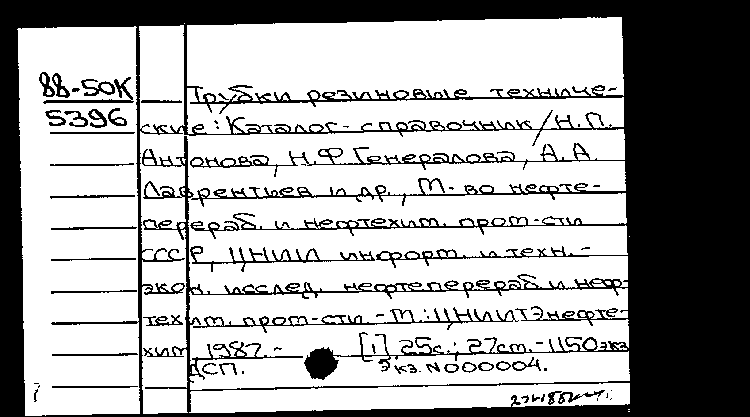 88-50К
5396
Трубки резиновые техниче-
ские: Каталог-справочник/Н.П.
Антонова, Н.Ф. Генералова, А.А.
Лаврентьев и др., М-во нефте-
перераб. и нефтехим. пром-сти
СССР, ЦНИИ информ. и техн.-
экон. исслед. нефтеперераб и неф-
техим. пром-сти - М.: ЦНИИТЭнефте-
хим, 1987. - [1], 25с.; 27см. - 1150экз
ДСП. Экз. N000004.